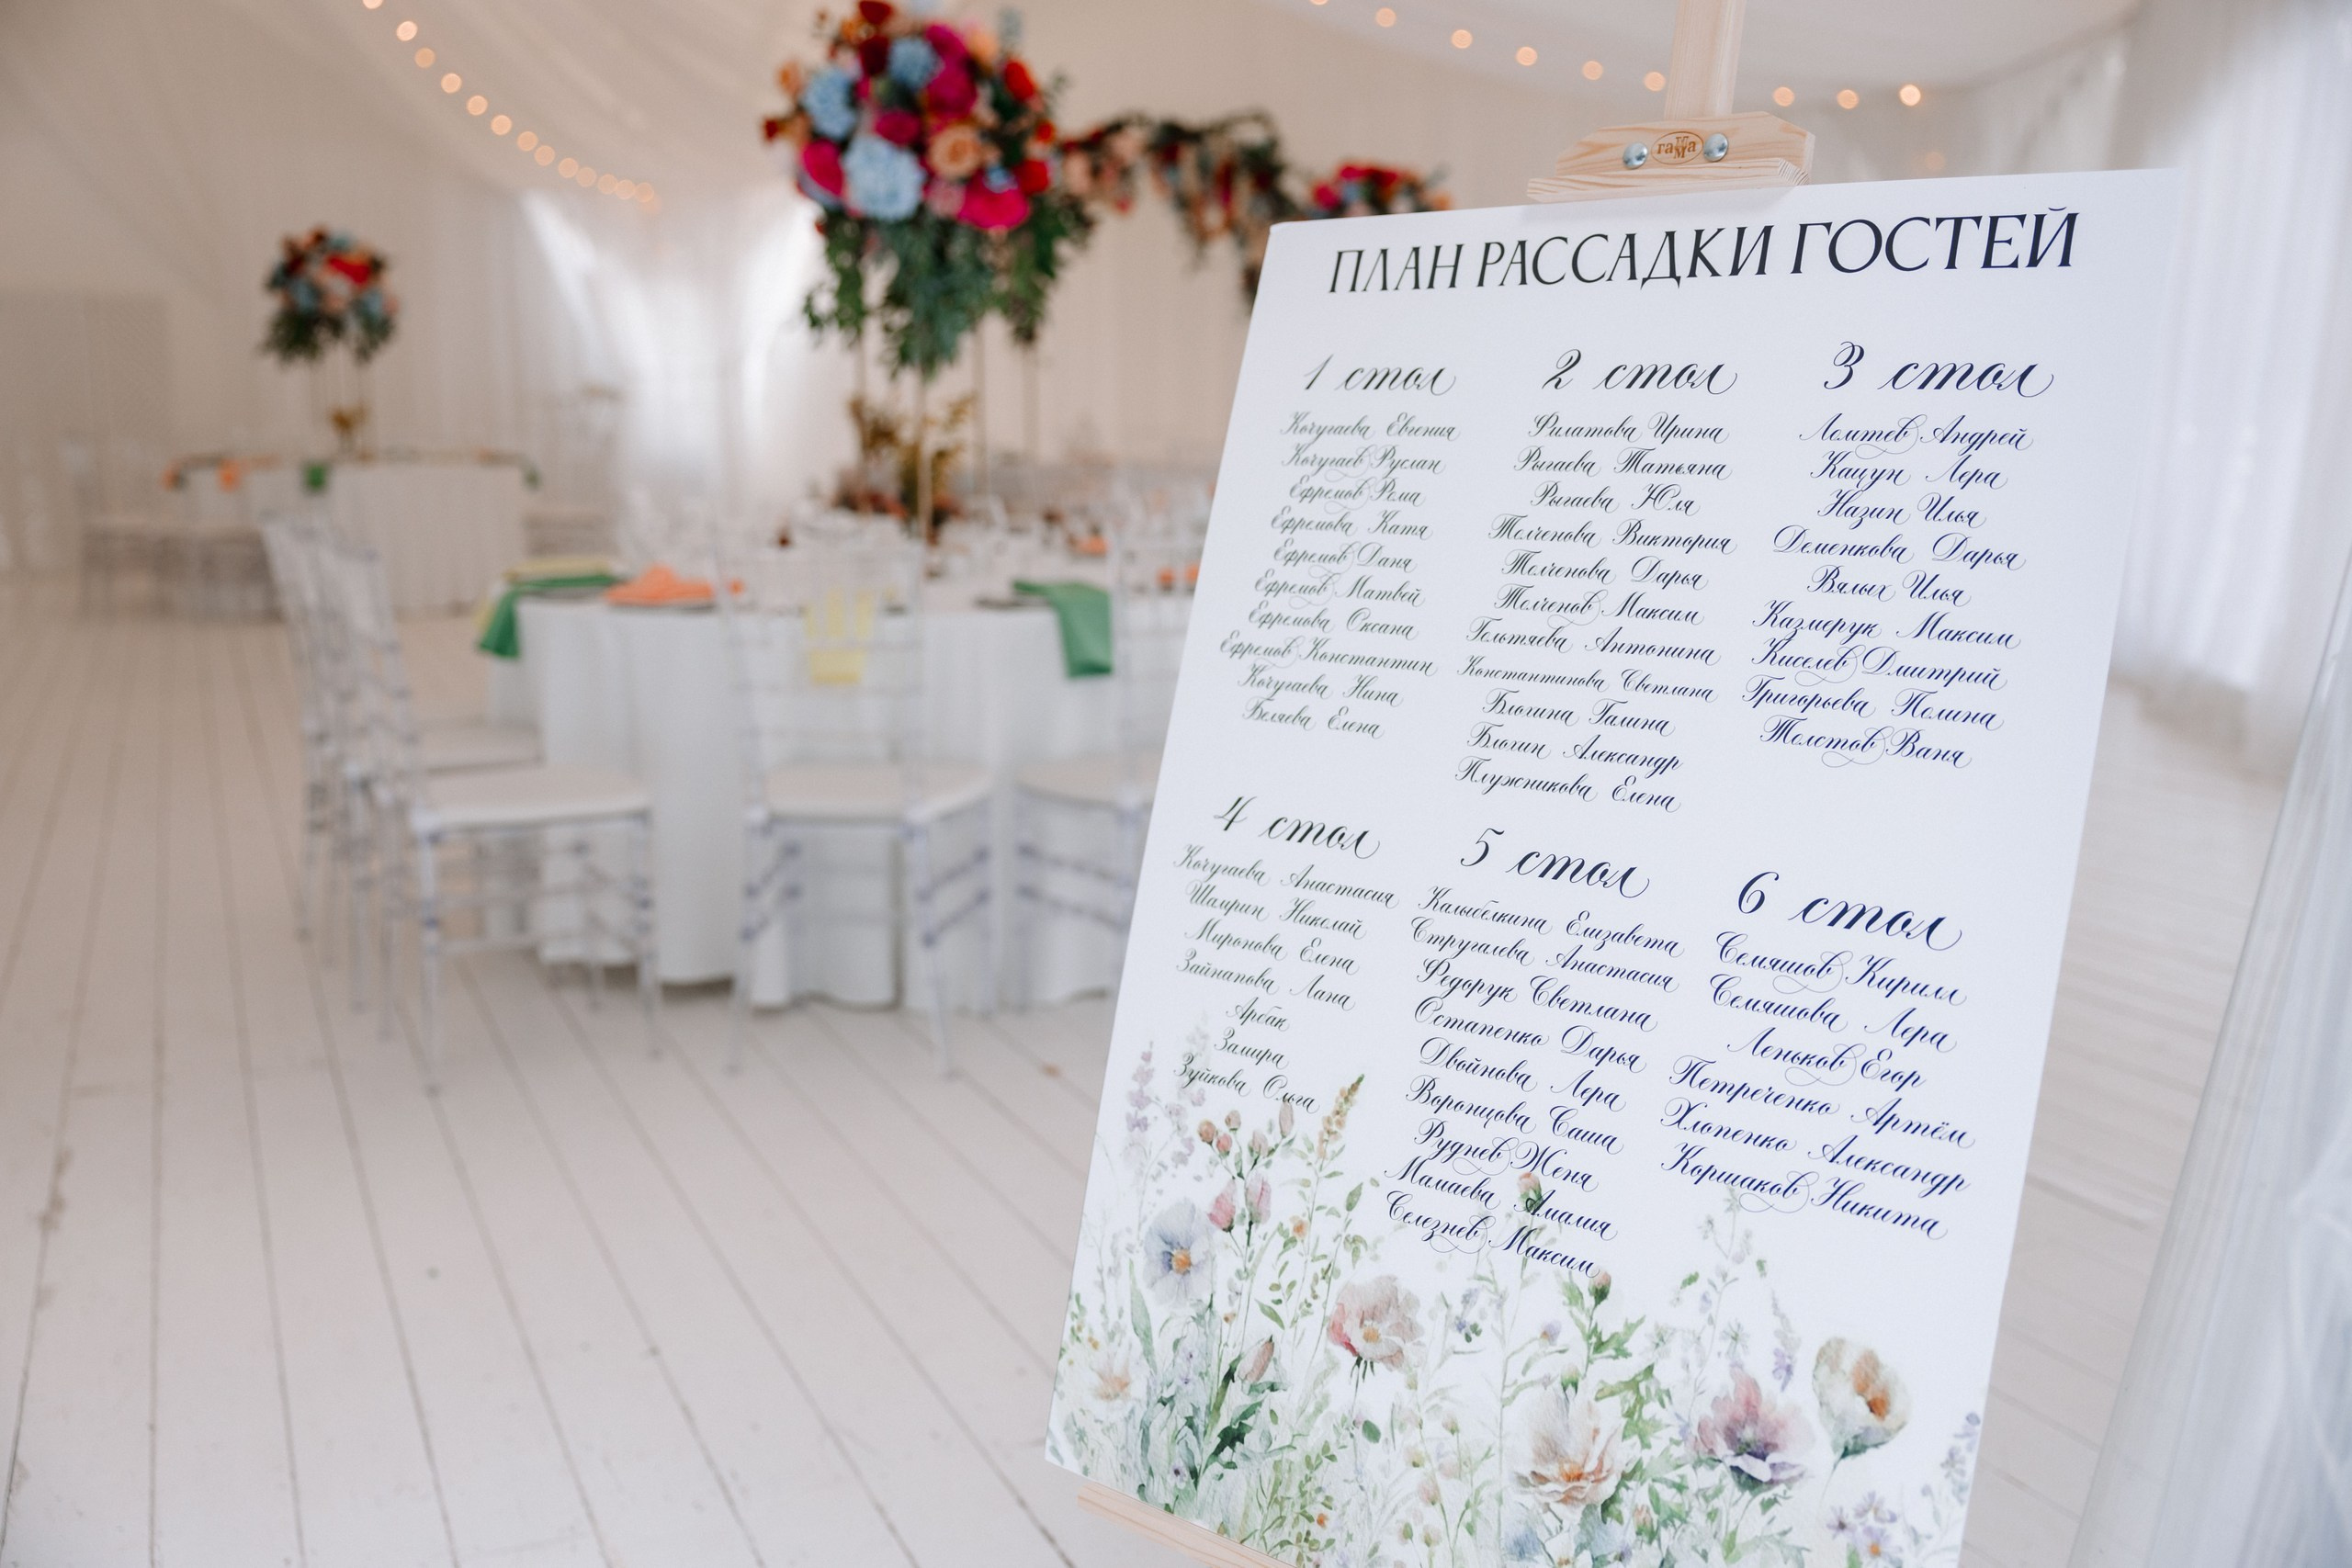 гамма
ПЛАН РАССАДКИ ГОСТЕЙ
1 стол
Кочугаева Евгения
Кочугаев Руслан
Ефремов Рома
Ефремова Катя
Ефремов Даня
Ефремов Матвей
Ефремова Оксана
Ефремов Константин
Кочугаева Нина
Беляева Елена
2 стол
Филатова Ирина
Рыгаева Татьяна
Рыгаева Юля
Толченова Виктория
Толченова Дарья
Толченов Максим
Гольтяева Антонина
Константинова Светлана
Блюгина Галина
Блюгин Александр
Плужникова Елена
3 стол
Ломтев Андрей
Кацун Лера
Назин Илья
Деменкова Дарья
Вялых Илья
Казмерук Максим
Киселев Дмитрий
Григорьева Полина
Толстов Ваня
4 стол
Кочугаева Анастасия
Шамрин Николай
Миронова Елена
Зайнапова Лана
Арбак
Замира
Зуйкова Ольга
5 стол
Калыбёлкина Елизавета
Стругалева Анастасия
Федорук Светлана
Остапенко Дарья
Двойнова Лера
Воронцова Саша
Руднев Женя
Мамаева Амалия
Селезнев Максим
6 стол
Семяшов Кирилл
Семяшова Лера
Леньков Егор
Петреченко Артём
Хлопенко Александр
Коршаков Никита